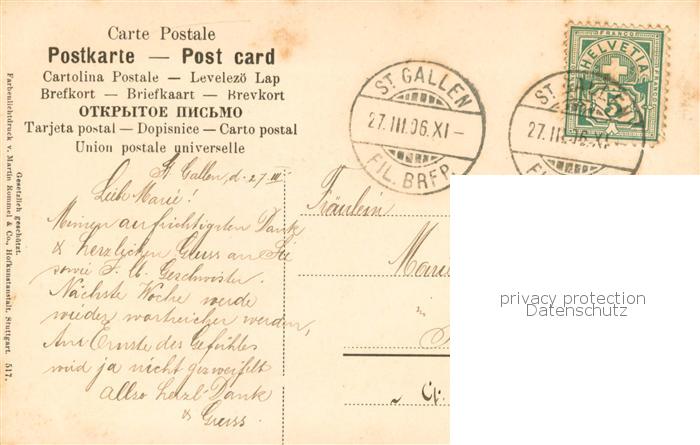 Carte Postale
Postkarte — Post card
Cartolina Postale — Levelező Lap
Brefkort — Briefkaart — Brevkort
ОТКРЫТОЕ ПИСЬМО
Tarjeta postal — Dopisnice — Carto postal
Union postale universelle
Farbenlichtdruck v. Martin Rommel & Co., Hofkunstanstalt, Stuttgart. 517.
Gesetzlich geschützt.
St Gallen d. 27 III
Lieb Marie!
Meinen aufrichtigsten Dank
& herzlichen Gruss an Sie
sowie Geschwister.
Nächste Woche werde
wieder wortreicher werden,
Am Ernste des Gefühles
wird ja nicht gezweifelt
Also herzl Dank
& Gruss.
FRANCO
HELVETIA
5
ST. GALLEN
27.III.06.XI–
FIL. BRFP.
ST.
27.III.06.XI–
Fräulein
privacy protection
Datenschutz